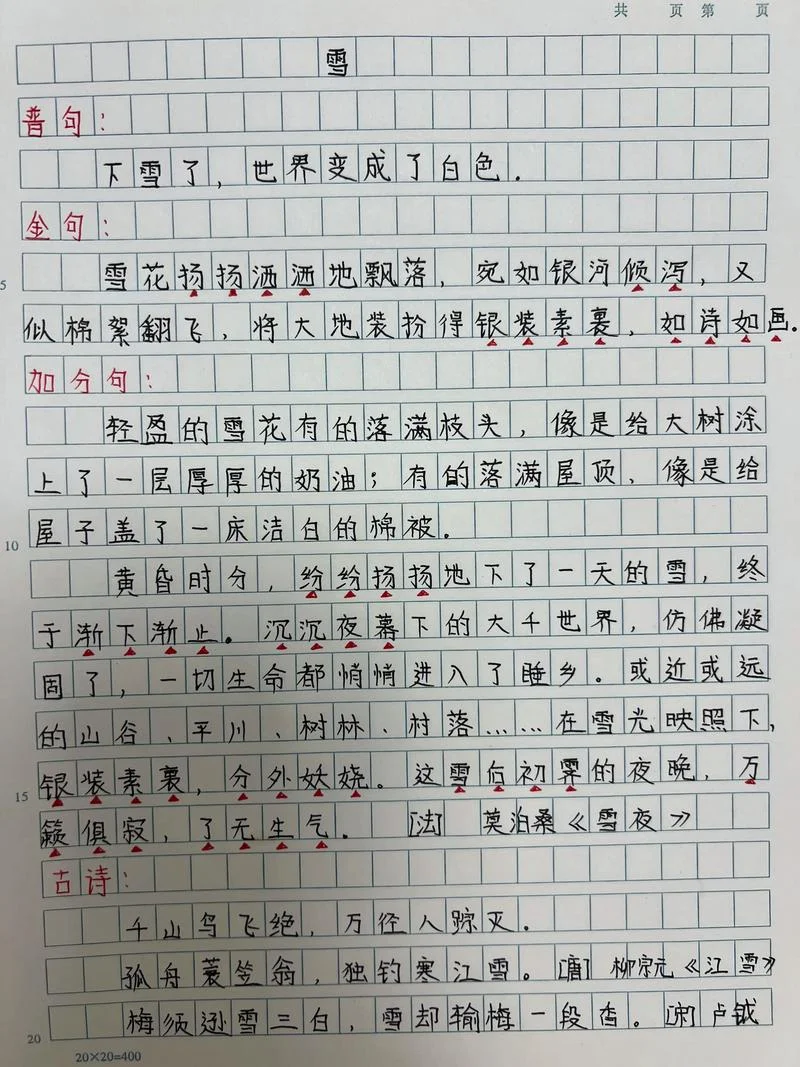 共 页 第 页
雪
普句：
下雪了，世界变成了白色．
金句：
5 雪花扬扬洒洒地飘落，宛如银河倾泻，又
似棉絮翻飞，将大地装扮得银装素裹，如诗如画．
加分句：
轻盈的雪花有的落满枝头，像是给大树涂
上了一层厚厚的奶油；有的落满屋顶，像是给
10 屋子盖了一床洁白的棉被．
黄昏时分，纷纷扬扬地下了一天的雪，终
于渐下渐止。沉沉夜幕下的大千世界，仿佛凝
固了，一切生命都悄悄进入了睡乡。或近或远
的山谷、平川、树林、村落……在雪光映照下，
15 银装素裹，分外妖娆。这雪后初霁的夜晚，万
籁俱寂，了无生气． [法] 莫泊桑《雪夜》
古诗：
千山鸟飞绝，万径人踪灭．
孤舟蓑笠翁，独钓寒江雪。[唐] 柳宗元《江雪》
20 梅须逊雪三白，雪却输梅一段香。[宋]卢钺
20×20=400